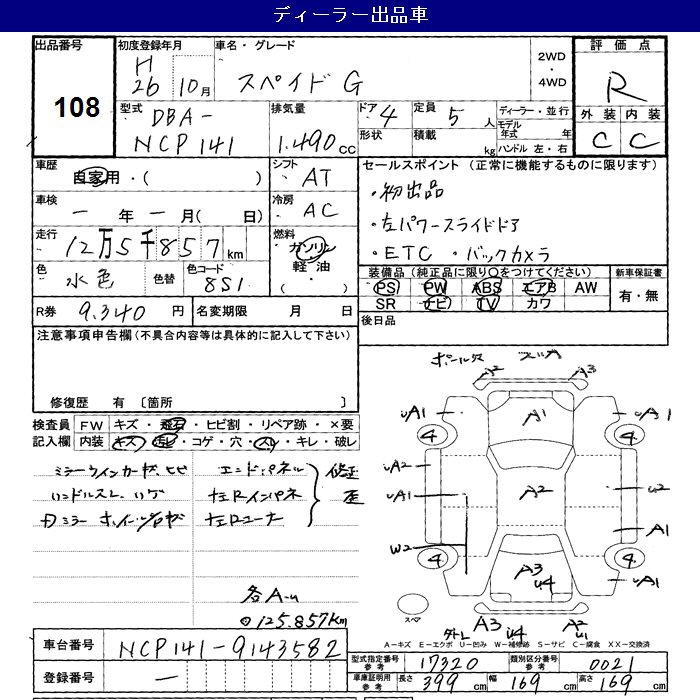 ディーラー出品車
出品番号 初度登録年月 車名・グレード 評価点
108
H 26 10月 スペイド G 2WD ・ 4WD R
外装 内装
C C
型式 排気量 ドア 4 定員 5 人 ディーラー・並行
DBA- NCP141 1.490 cc 形状 積載 kg モデル年式 年
ハンドル 左・右
車歴 自家用・( ) シフト AT セールスポイント (正常に機能するものに限ります)
・初出品
車検 ー 年 ー 月( 日) 冷房 AC ・左パワースライドドア
走行 12万5千857km 燃料 ガソリン 軽油 ( ・ ) ・ETC ・バックカメラ
色 水色 色替 色コード 8S1
装備品 (純正品に限り○をつけてください) 新車保証書
PS PW ABS エアB AW 有・無
SR ナビ TV カワ
R券 9.340 円 名変期限 月 日
後日品
注意事項申告欄(不具合内容等は具体的に記入して下さい)
修復歴 有 〔箇所 〕
検査員 FW キズ・飛石・ヒビ割・リペア跡・×要
記入欄 内装 キズ・汚レ・コゲ・穴・スレ・キレ・破レ
エンドパネル
左Rインパネ
左Rコーナ
修正
歪
各A-u
125.857km
A2 A3
uA1 A1 uA1
4 4
uA2
uA1 A2 u2
A1
W2
4 A3 u4 4
uA1
スペア
A3 u4 A2 u1
A-キズ E-エクボ U-凹み W-補修跡 S-サビ C-腐食 XX-交換済
車台番号 NCP141-9143582
登録番号 ー
型式指定番号 参考 17320 類別区分番号 参考 0021
車庫証明用 参考 長さ 399 cm 幅 169 cm 高さ 169 cm